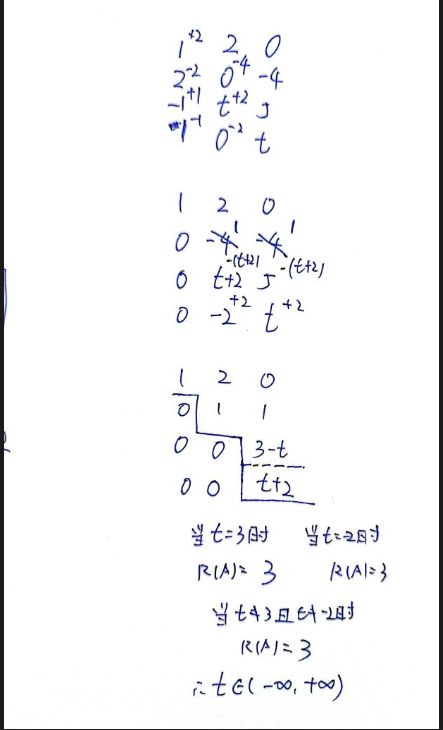 1⁺² 2 0
2⁻² 0⁻⁴ -4
-1⁺¹ t⁺² 5
1⁻¹ 0⁻² t
1 2 0
0 -4 1 -4 1
0 t+2 -(t+2) 5 -(t+2)
0 -2⁺² t⁺²
1 2 0
0 1 1
0 0 3-t
0 0 t+2
当t=3时 当t=-2时
R(A)=3 R(A)=3
当t≠3且t≠-2时
R(A)=3
∴t∈(-∞,+∞)